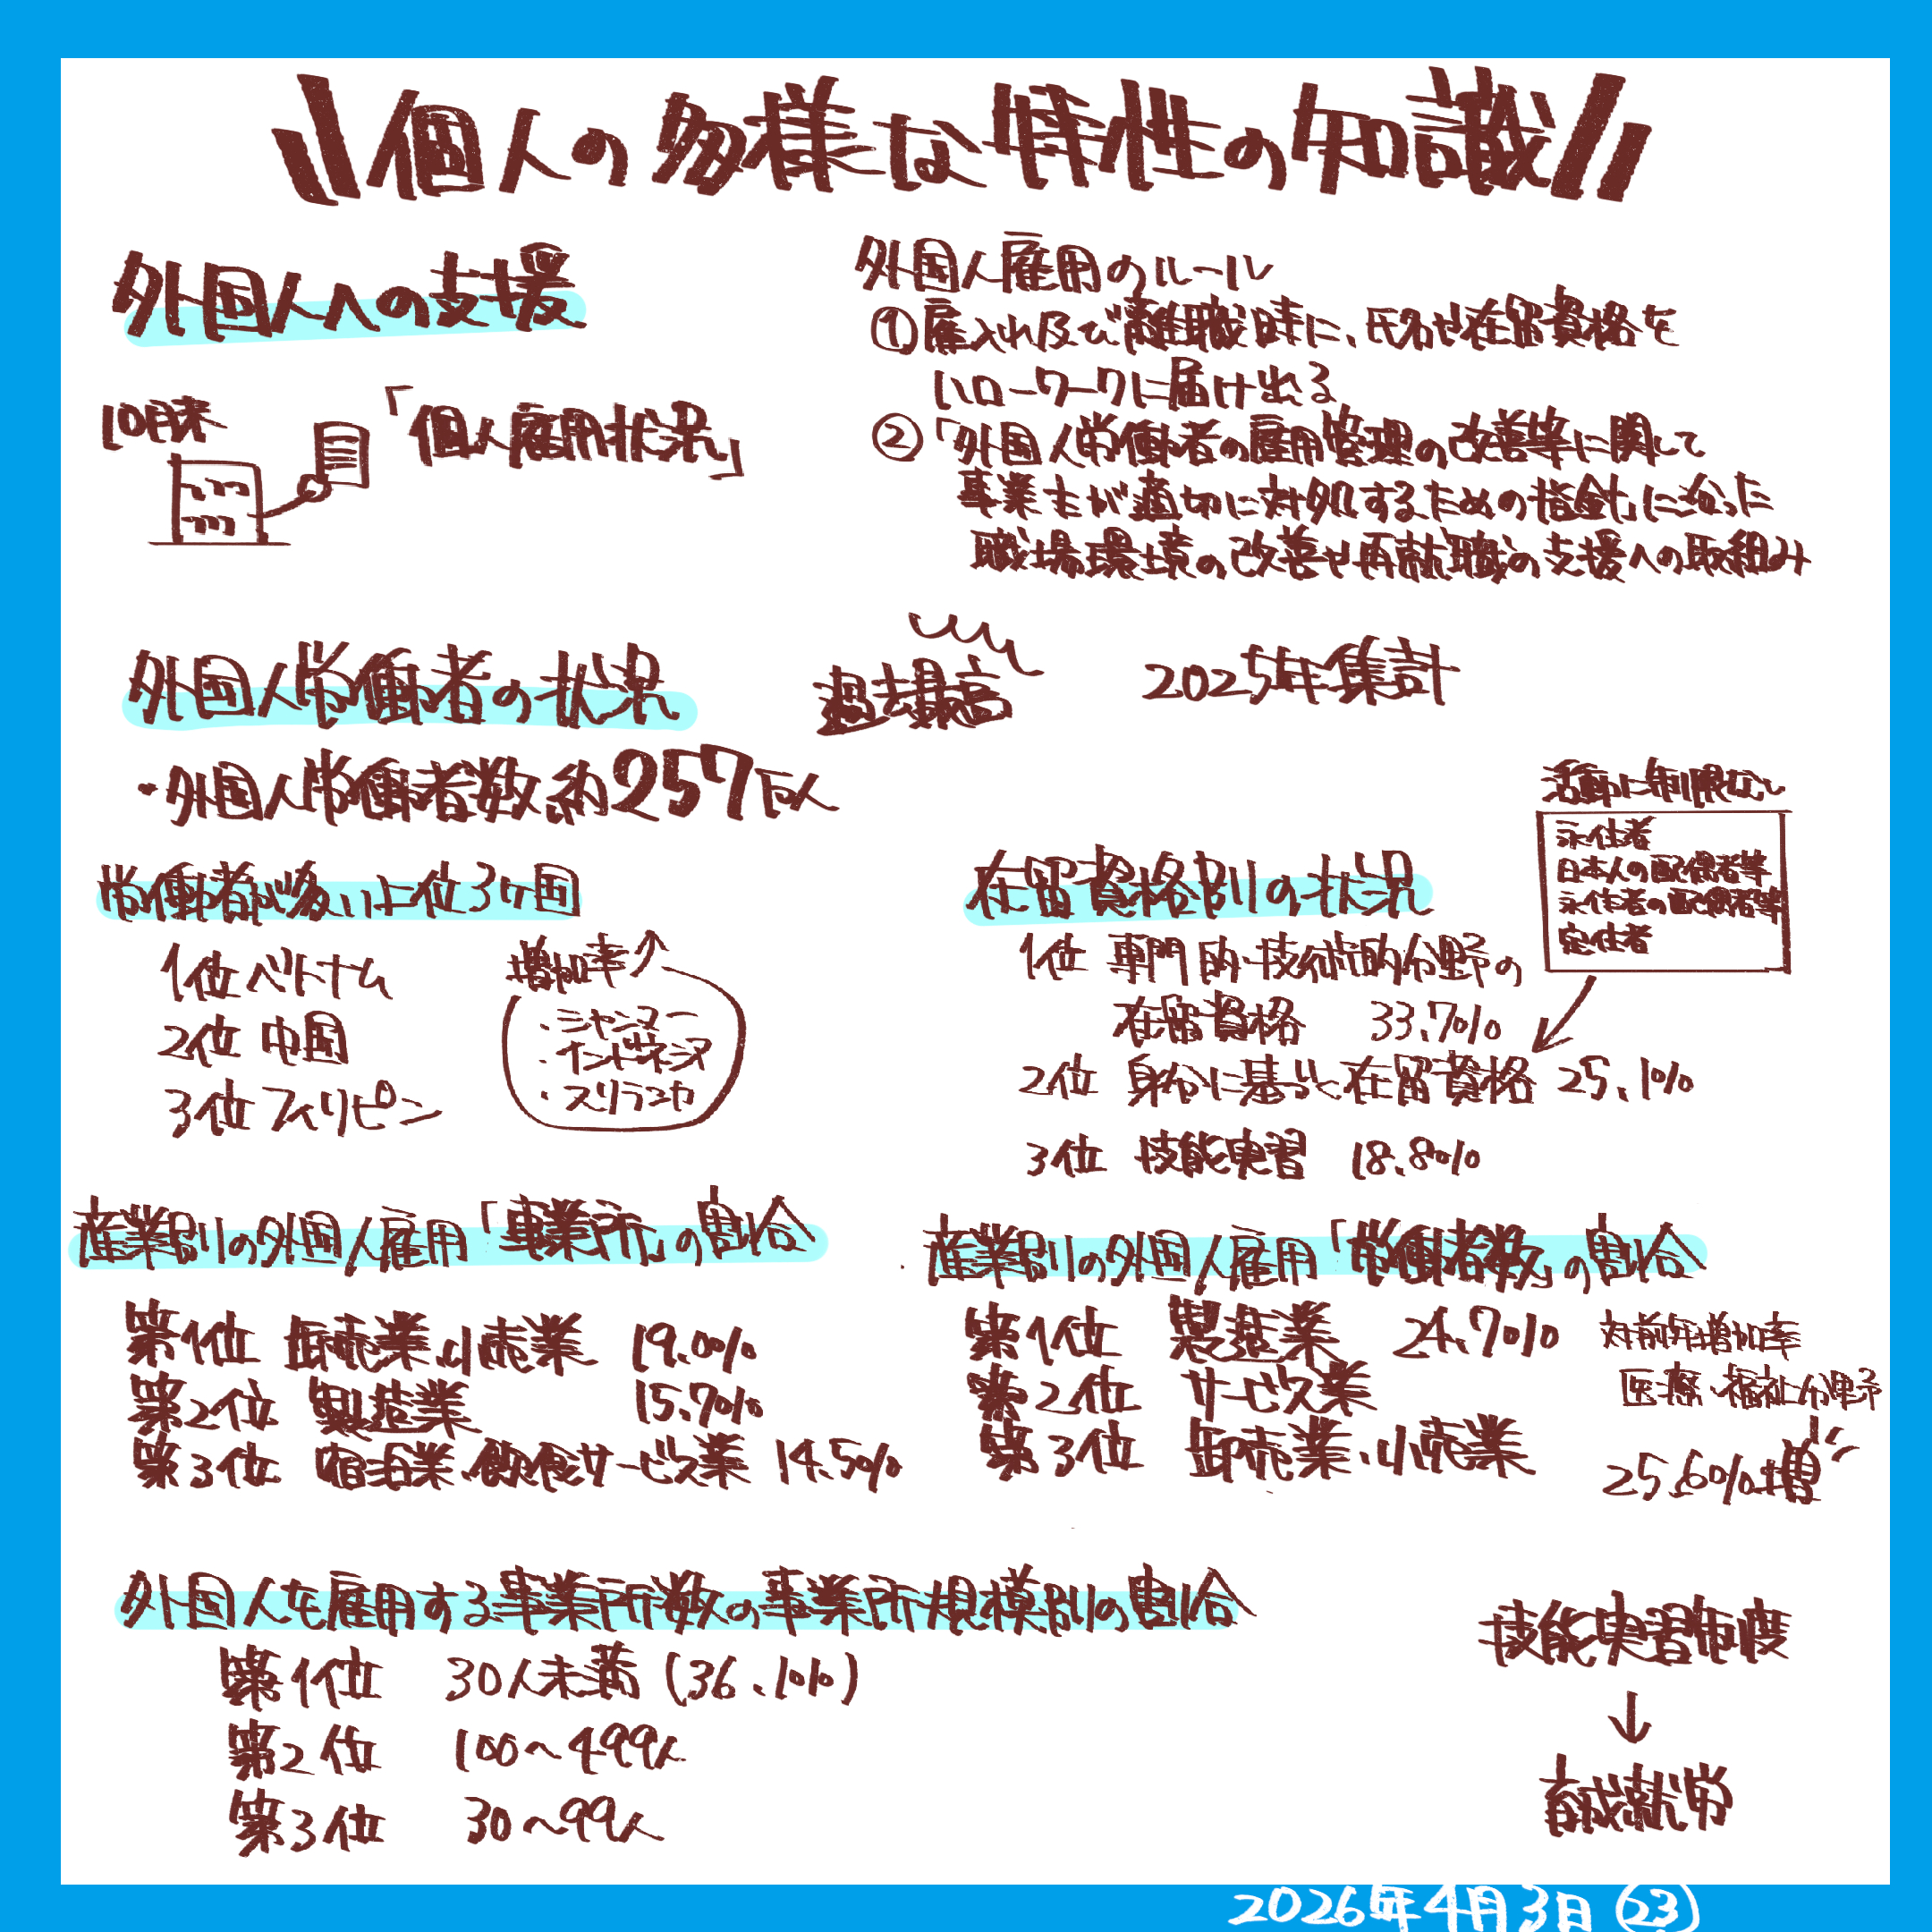 個人の多様な特性の知識
外国人への支援
10月末
「個人雇用状況」
外国人雇用のルール
①雇入れ及び離職時に、氏名や在留資格を
ハローワークに届け出る
②「外国人労働者の雇用管理の改善等に関して
事業主が適切に対処するための指針」に沿った
職場環境の改善や再就職の支援への取組み
外国人労働者の状況
過去最高
2025年集計
・外国人労働者数約257万人
労働者が多い上位3ヶ国
1位ベトナム
2位 中国
3位フィリピン
増加率↑
・ミャンマー
・インドネシア
・スリランカ
在留資格別の状況
活動に制限なし
永住者
日本人の配偶者等
永住者の配偶者等
定住者
1位 専門的・技術的分野の
在留資格 33.7%
2位 身分に基づく在留資格 25.1%
3位 技能実習 18.8%
産業別の外国人雇用「事業所」の割合
第1位 卸売業、小売業 19.0%
第2位 製造業 15.7%
第3位 宿泊業、飲食サービス業 14.5%
産業別の外国人雇用「労働者数」の割合
第1位 製造業 24.7%
第2位 サービス業
第3位 卸売業、小売業
対前年増加率
医療・福祉分野
25.6%増
外国人を雇用する事業所数の事業所規模別の割合
第1位 30人未満(36.1%)
第2位 100〜499人
第3位 30〜99人
技能実習制度
↓
育成就労
2026年4月3日㉓